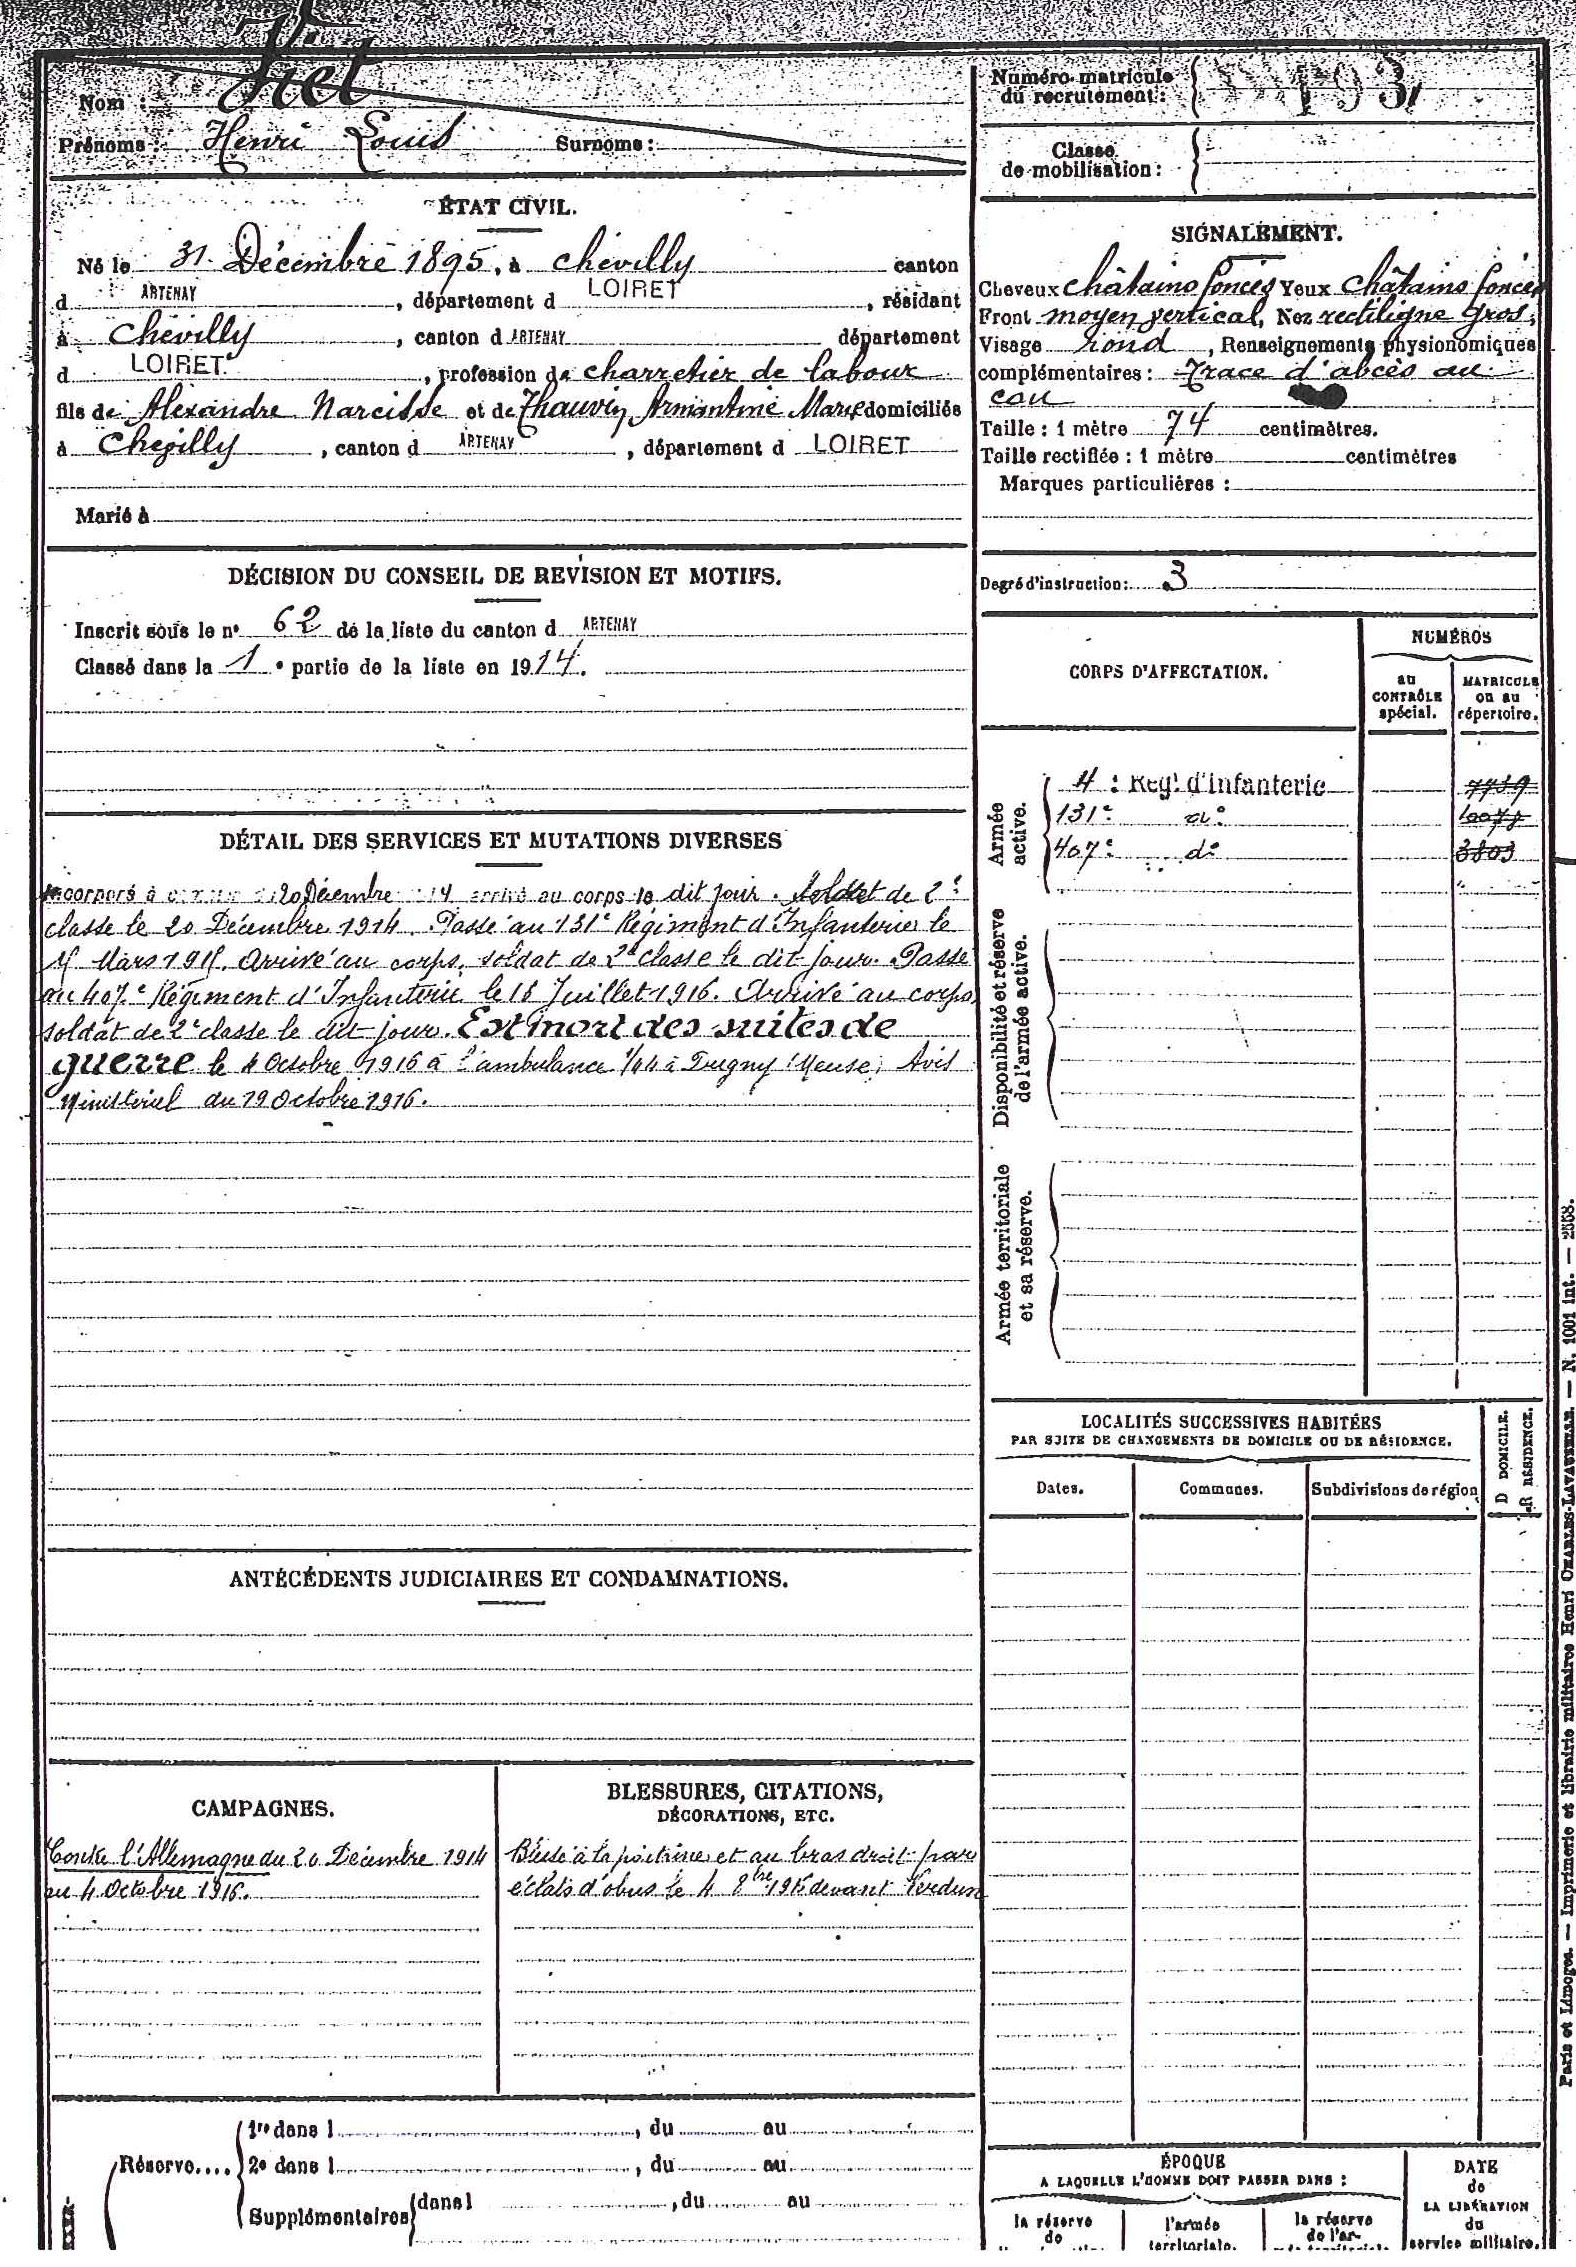 Nom : Viet
Prénoms : Henri Louis Surnoms :
ÉTAT CIVIL.
Né le 31 Décembre 1895, à Chevilly canton
d ARTENAY, département d LOIRET, résidant
à Chevilly, canton d ARTENAY département
d LOIRET, profession de charretier de labour
fils de Alexandre Narcisse et de Thauvin Armantine Marie domiciliés
à Chevilly, canton d ARTENAY, département d LOIRET
Marié à
DÉCISION DU CONSEIL DE REVISION ET MOTIFS.
Inscrit sous le n° 62 de la liste du canton d ARTENAY
Classé dans la 1e partie de la liste en 1914.
DÉTAIL DES SERVICES ET MUTATIONS DIVERSES
Incorporé à 20 Décembre 14 arrivé au corps le dit jour. Soldat de 2e
classe le 20 Décembre 1914. Passé au 131e Régiment d'Infanterie le
Mars 1915. Arrivé au corps, soldat de 2e classe le dit jour. Passé
au 407e Régiment d'Infanterie le 18 Juillet 1916. Arrivé au corps,
soldat de 2e classe le dit jour. Est mort des suites de
guerre le 4 Octobre 1916 à l'ambulance 1/44 à Dugny Meuse, Avis
Ministeriel du 19 Octobre 1916.
ANTÉCÉDENTS JUDICIAIRES ET CONDAMNATIONS.
CAMPAGNES.
Contre l'Allemagne du 20 Décembre 1914
au 4 Octobre 1916.
BLESSURES, CITATIONS,
DÉCORATIONS, ETC.
Blessé à la poitrine et au bras droit par
éclats d'obus le 4 8bre 1916 devant Verdun
Réserve....
1re dans l , du au
2e dans l , du au
Supplémentaires dans l , du au
Numéro matricule
du recrutement : 193
Classe
de mobilisation :
SIGNALEMENT.
Cheveux Châtains foncés Yeux Châtains foncés
Front moyen vertical, Nez rectiligne gros,
Visage rond, Renseignements physionomiques
complémentaires : Trace d'abcès au
cou
Taille : 1 mètre 74 centimètres.
Taille rectifiée : 1 mètre centimètres
Marques particulières :
Degré d'instruction : 3
CORPS D'AFFECTATION.
NUMÉROS
au
CONTRÔLE
spécial.
MATRICULE
ou au
répertoire.
Armée
active.
4e Régt d'Infanterie 7739
131e do 10078
407e do 3803
Disponibilité et réserve
de l'armée active.
Armée territoriale
et sa réserve.
LOCALITÉS SUCCESSIVES HABITÉES
PAR SUITE DE CHANGEMENTS DE DOMICILE OU DE RÉSIDENCE.
Dates. Communes. Subdivisions de région
D DOMICILE.
R RÉSIDENCE.
ÉPOQUE
A LAQUELLE L'HOMME DOIT PASSER DANS :
la réserve
de
l'armée
territoriale.
la réserve
de l'ar-
DATE
de
LA LIBÉRATION
du
service militaire.
Paris et Limoges. — Imprimerie et librairie militaires Henri CHARLES-LAVAUZELLE. — N. 1001 int. — 2558.